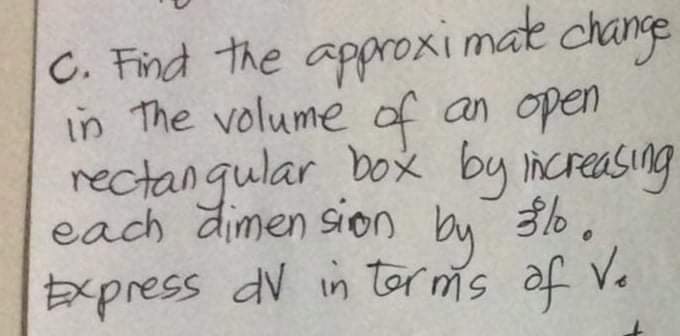 C. Find the approximate change
in the volume of an open
rectangular box by increasing
each dimension by 3%.
Express dV in terms of V.